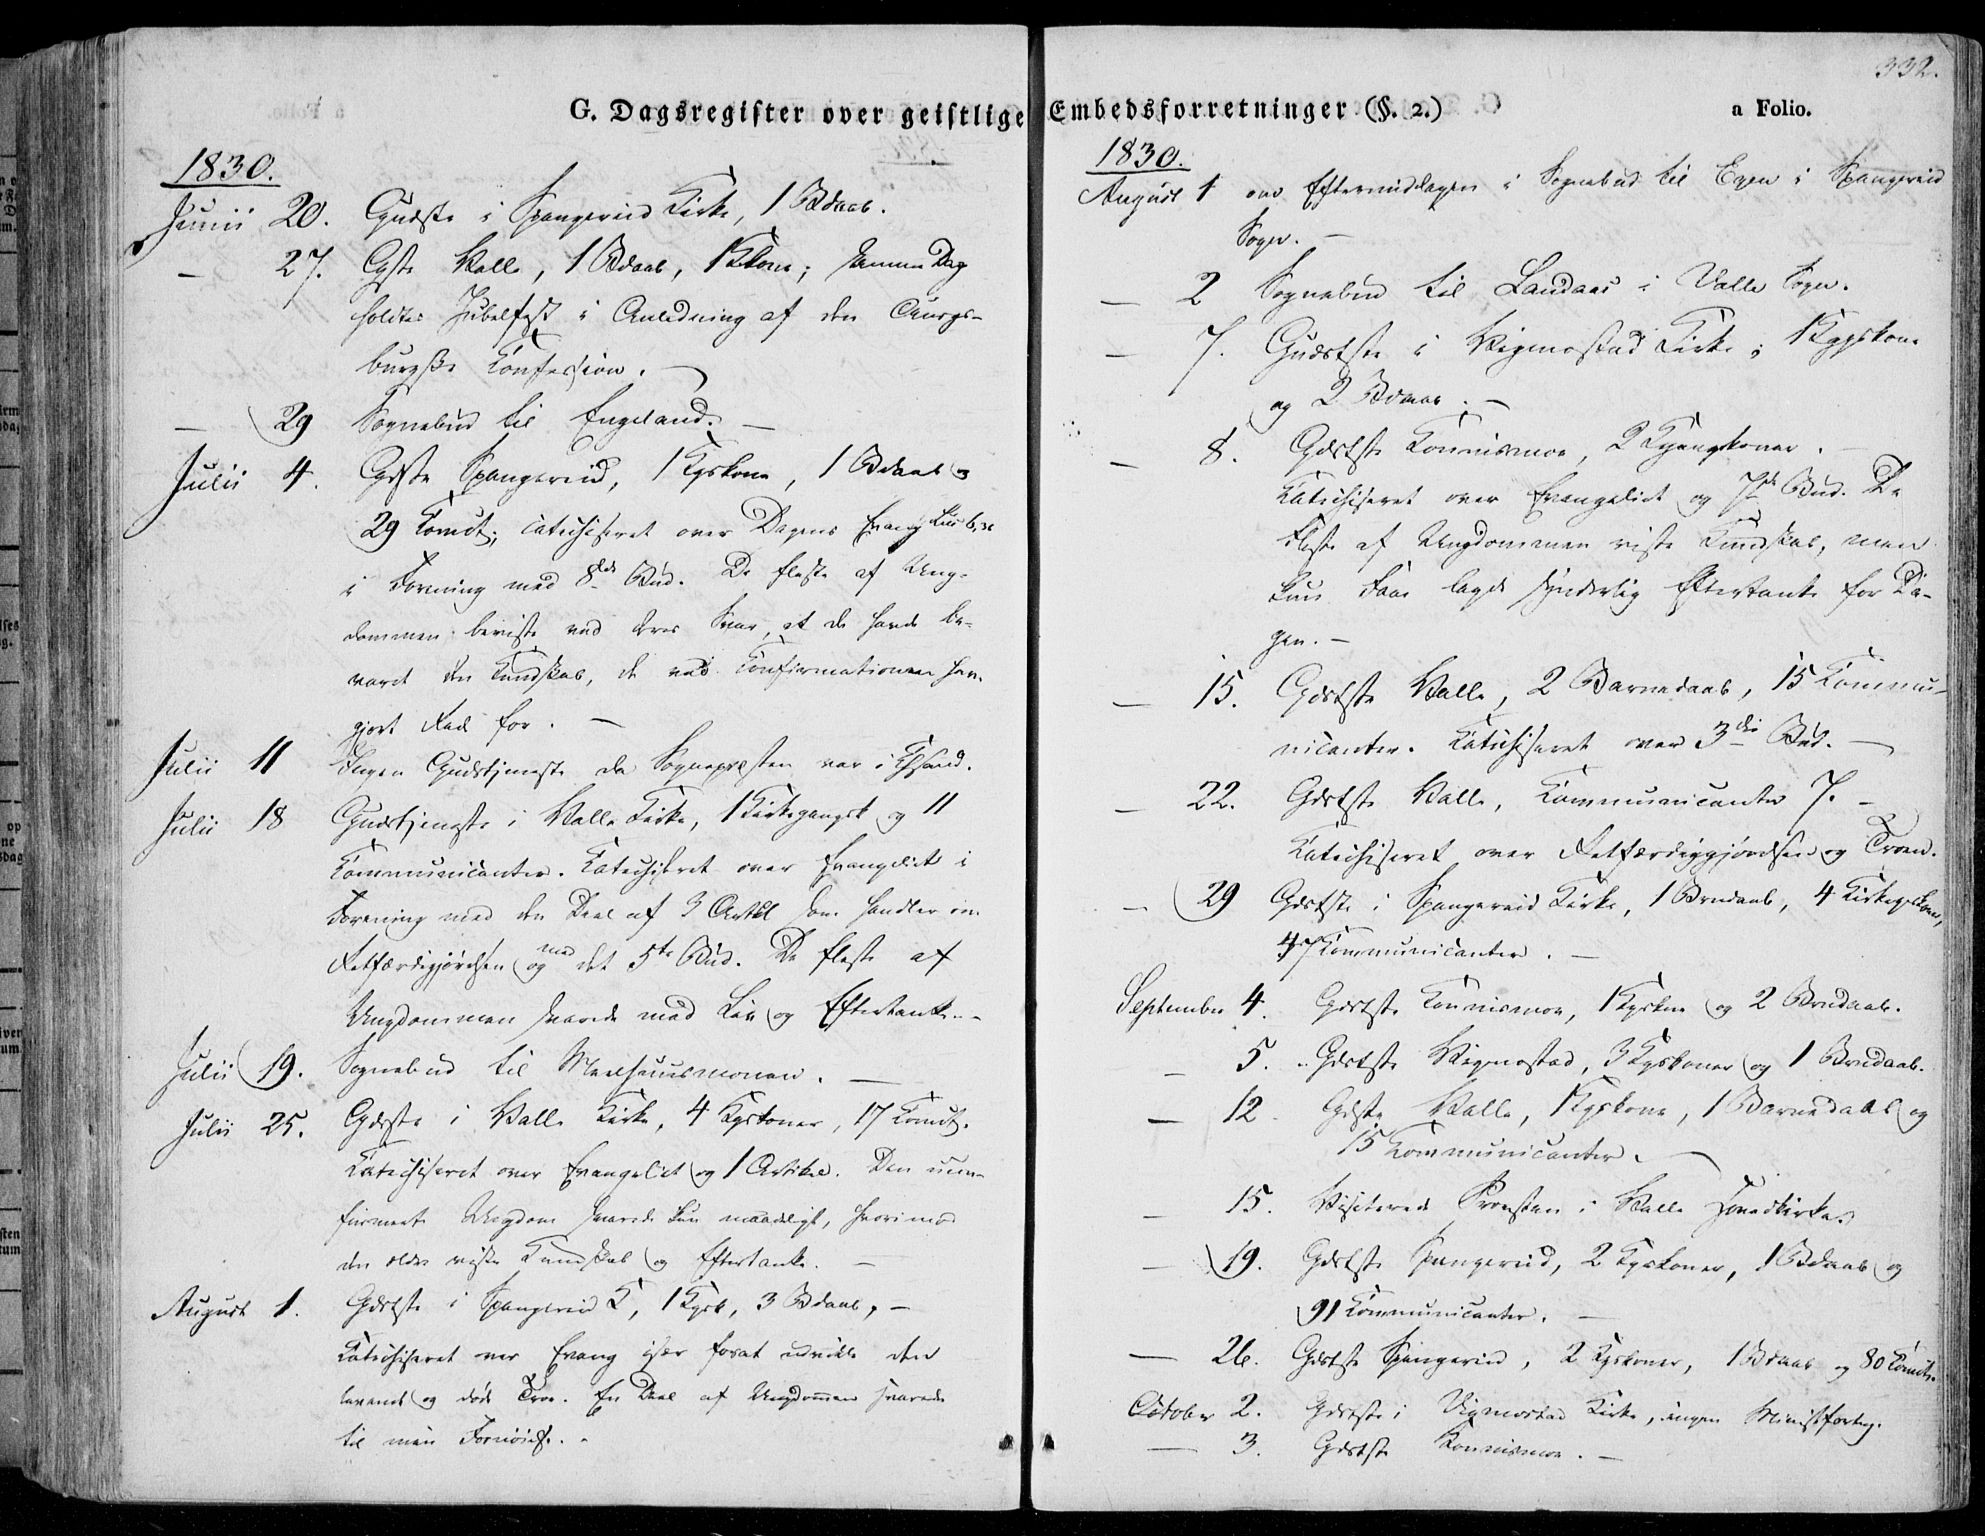 332.
G. Dagsregister over geistlige Embedsforretninger (§. 2.)
a Folio.
1830.
Junii 20. Gudste i Spangereid Kirke, 1 Bdaab.
— 27. Gste Valle, 1 Bdaab, 1 Kkone; samme Dag
holdtes Jubelfest i Anledning af den Augs-
burgske Confession. —
— 29 Sognebud til Engeland. —
Julii 4. Gdste Spangereid, 1 Kgskone, 1 Bdaab og
29 Comct; catechiseret over Dagens Evang
i Forening med 8de Bud. De fleste af Ung-
dommen beviste ved deres Svar, at de havde be-
varet den Kundskab, de ved Confirmationen hav.
gjort Rede for. —
Julii 11 Ingen Gudstjeneste da Sognepresten var i Chsand.
Julii 18 Gudstjeneste i Valle Kirke, 1 Kirkegangsk og 11
Communicanter. Catechiseret over Evangeliet i
Forening med den Deel af 3 Artkl som handler om
Retfærdigjørelsen og med det 5te Bud. De fleste af
Ungdommen svarede med Liv og Eftertanke. -
Julii 19. Sognebud til . —
Julii 25. Gdste i Valle Kirke, 4 Kgskoner, 17 Comct.
Catechiseret over Evangeliet og 1 Artikel. Den ucon-
firmeete Ungdom svarede kun maadeligt, hvorimod
den ældre viste Kundskab og Eftertanke. —
August 1. Gdstste i Spangereid K, 1 Kgsk, 3 Bdaab, —
Catechiseret over Evang især forat udvikle den
levende og døde Troe. En Deel af Ungdommen svarede
til min Fornøielse. -
1830.
August 1 om Eftermiddagen i Sognebud til Egen i Spangereid
Sogn. —
— 2 Sognebud til Landaas i Valle Sogn.
— 7. Gudstste i Vigmostad Kirke; 1 Kggskone
og 2 Bdaab. —
— 8. Gdstste Konnismoe, 2 Kgangskoner. —
Catechiseret over Evangeliet og 7de Bud. De
fleste af Ungdommen viste Kundskab, men
kun faae lagde synderlig Eftertanke for Da-
gen. —
— 15. Gdstste Valle, 2 Barnedaab, 15 Commu-
nicanter. Catechiseret over 3die Bud. —
— 22. Gdstste Valle, Communicanter 7. —
Catechiseret over Retfærdiggjørelsen og Troen.
— 29 Gdstste i Spangereid Kirke, 1 Brndaab, 4 Kirkegskoner,
47 Communicanter. —
September 4. Gdstste Konnismoe, 1 Kgskne og 2 Brndaab.
— 5. Gdstste Vigmostad, 3 Kgskoner og 1 Brndaab.
— 12. Gdste Valle, 1 Kgskone, 1 Barnedaab og
15 Communicanter. —
— 15. Visiterede Provsten i Valle Hovedkirke.
— 19. Gdstste Spangereid, 2 Kgskoner, 1 Bdaab og
91 Communicanter. —
— 26. Gdstste Spangereid, 2 Kgskoner, 1 Bdaab og 80 Comcts.
October 2. Gdstste i Vigmostad Kirke, ingen Ministforretng.
— 3. Gdstste Konnismoe. —